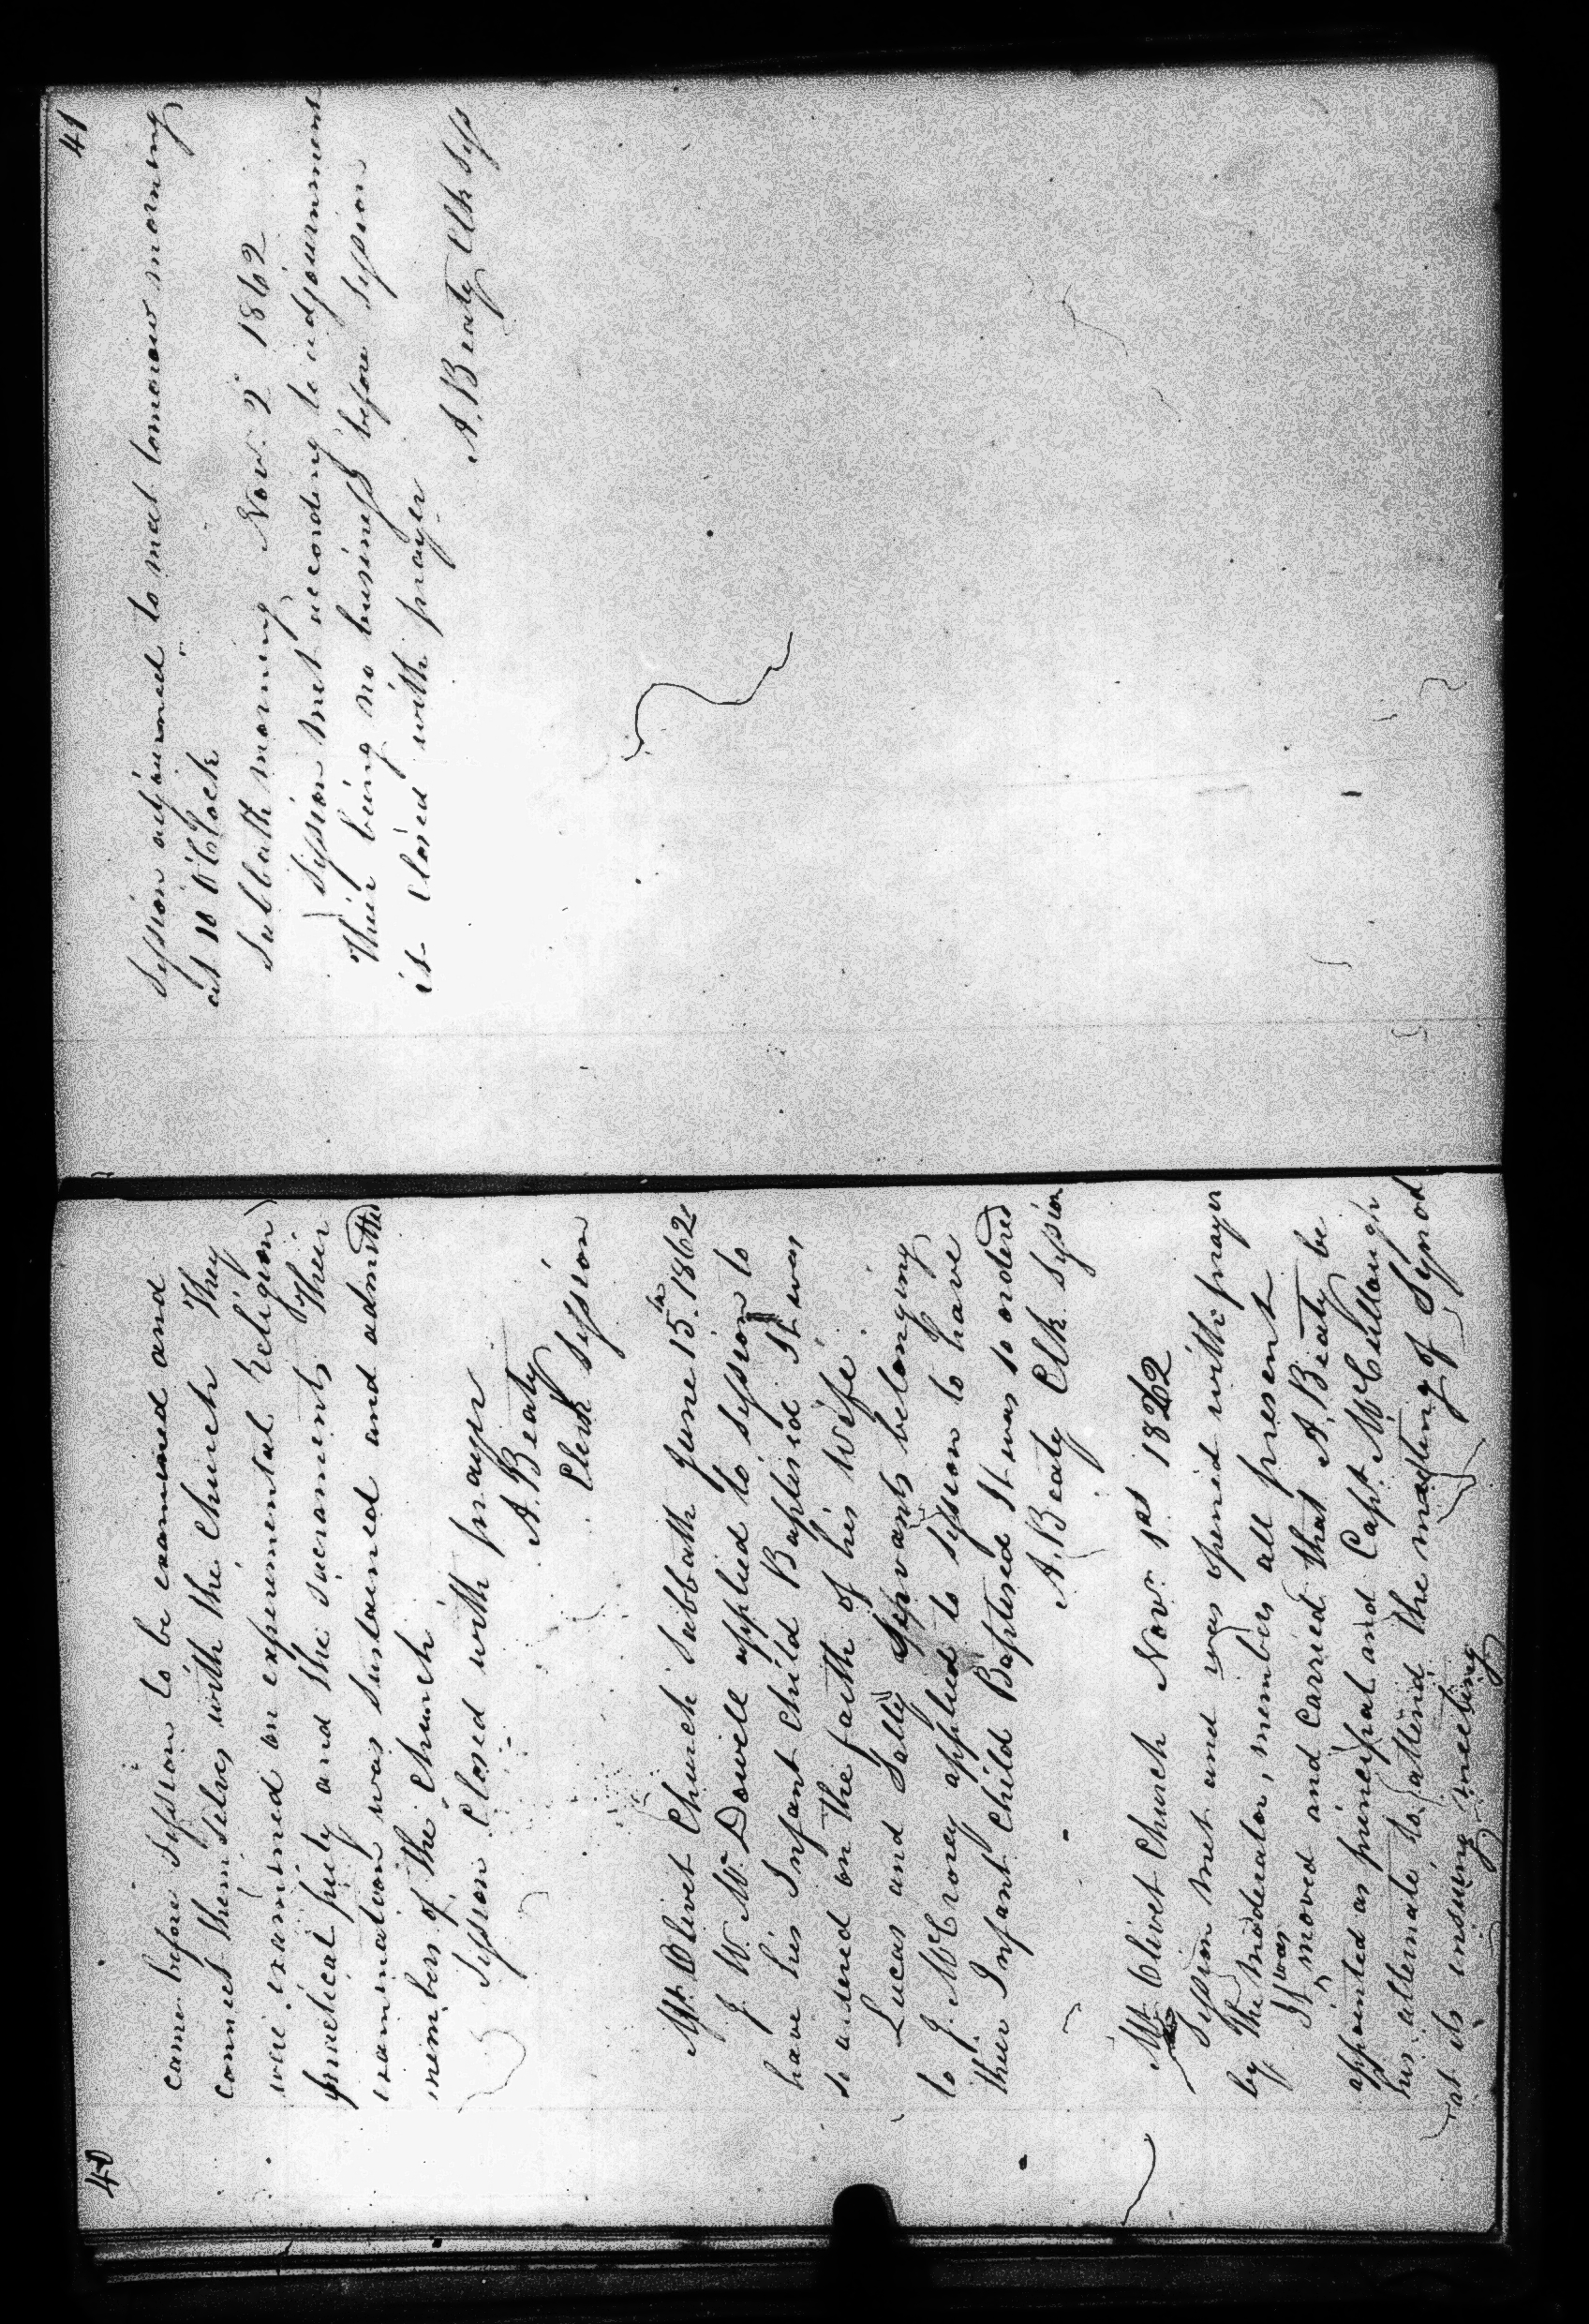 40
came before Session to be examined and
connect them selves with the Church They
were examined on experimental Religion
practical piety and the sacraments Their
examination was sustained and admitted
members of the Church
Session Closed with prayer
A. Beaty
Clerk Session
Mt. Olivet Church Sabbath June 15th 1862
J. W. McDowell applied to Session to
have his Infant Child Baptised It was
so ordered on the faith of his Wife
Lucas and Sally Servants belonging
to J. McCrorey applied to Session to have
their Infant Child Baptised It was so ordered
A. Beaty Clk Session
Mt. Olivet Church Nov. 1st 1862
Session met and was opened with prayer
by the moderator, members all present
It was moved and carried that A. Beaty be
appointed as principal and Capt. McCullough
his alternate to attend the meeting of Synod
at its ensuing meeting
41
Session adjourned to meet tomorow morning
at 10 O Clock
Sabbath morning Nov. 2 1862
Session met according to adjournment
Their being no business before Session
it closed with prayer
A. Beaty Clk Sess